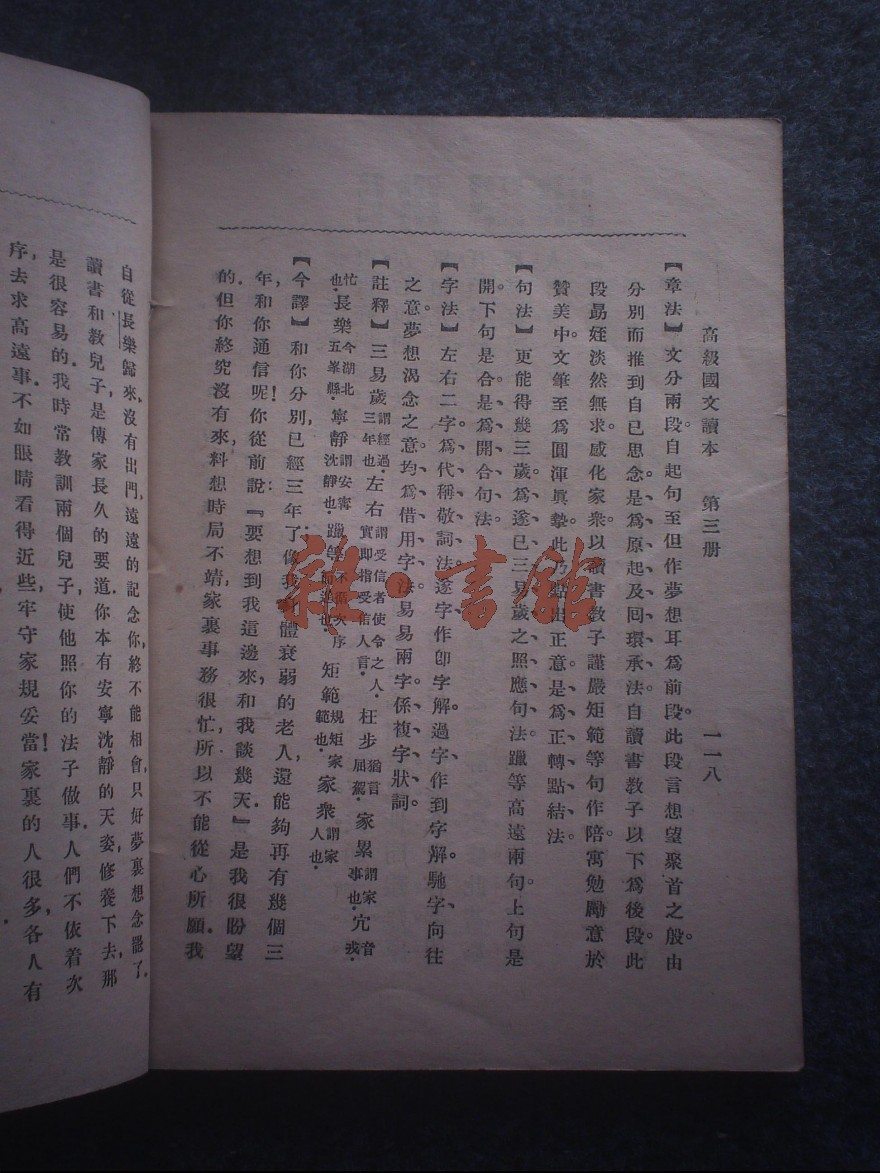 高級國文讀本　第三册　一一八
【章法】文分兩段。自起句至但作夢想耳爲前段。此段言想望聚首之殷。由
分別而推到自己思念。是爲原起及囘環承法。自讀書教子以下爲後段。此
段勗姪淡然無求。感化家衆。以讀書教子謹嚴矩範等句作陪。寓勉勵意於
贊美中。文筆至爲圓渾眞摯。此乃點出正意。是爲正轉點結法。
【句法】更能得幾三歲。爲遂已三易歲之照應句法。躐等高遠兩句。上句是
開。下句是合。是爲開合句法。
【字法】左右二字。爲代稱敬詞法。遂字作卽字解。過字作到字解。馳字向往
之意。夢想渴念之意。均爲借用字法。易易兩字。係複字狀詞。
【註釋】三易歲謂經過三年也。左右謂受信者使令之人。實卽指受信人言。枉步猶言屈駕。家累謂家事也。宂音戎
忙也。長樂今湖北五峯縣。寧靜謂安寗沈靜也。躐等不循次序而進也。矩範規矩家範也。家衆謂家人也。
【今譯】和你分別已經三年了。像我體衰弱的老人，還能夠再有幾個三
年，和你通信呢！你從前說：『要想到我這邊來，和我談幾天。』是我很盼望
的。但你終究沒有來，料想時局不靖，家裏事務很忙，所以不能從心所願。我
自從長樂歸來，沒有出門，遠遠的記念你，終不能相會，只好夢裏想念罷了。
讀書和教兒子，是傳家長久的要道。你本有安寧沈靜的天姿，修養下去，那
是很容易的。我時常教訓兩個兒子，使他照你的法子做事。人們不依着次
序，去求高遠事。不如眼睛看得近些，牢守家規妥當！家裏的人很多，各人有
雜·書館